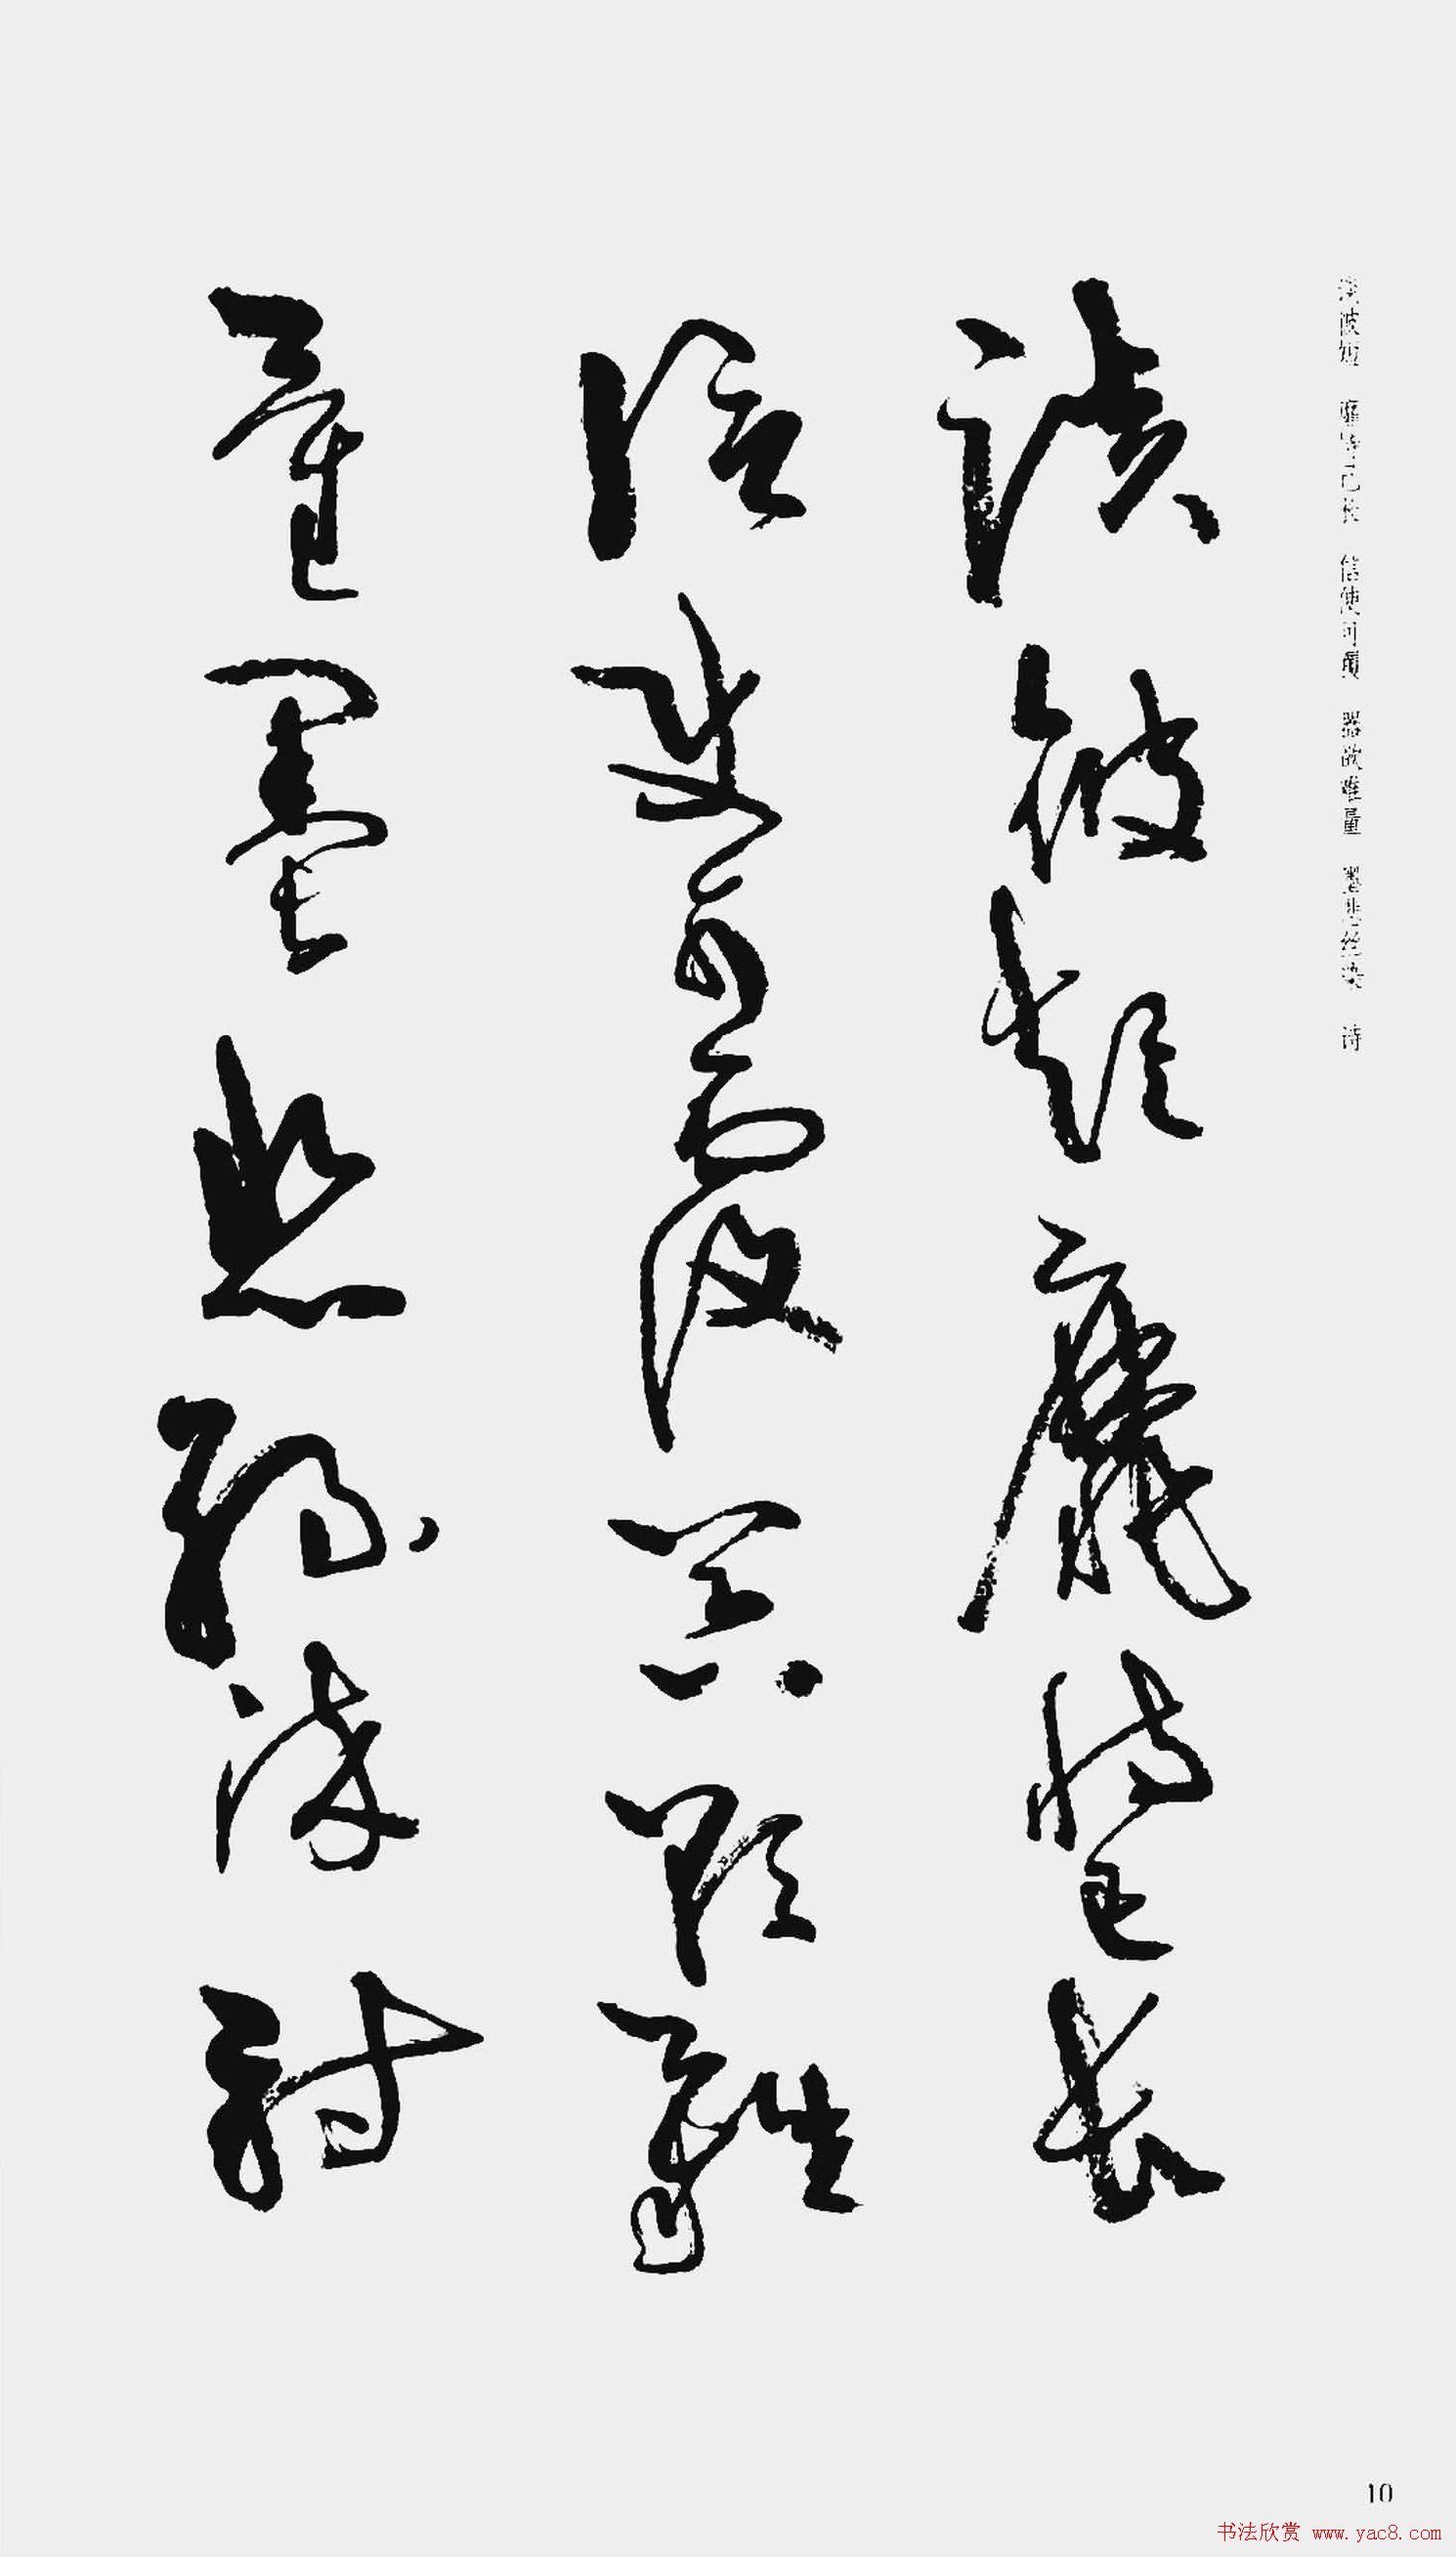 谈彼短靡恃己长
信使可覆器欲难
量墨悲丝染诗
谈彼短 靡恃己长 信使可覆 器欲难量 墨悲丝染 诗
10
书法欣赏 www.yac8.com